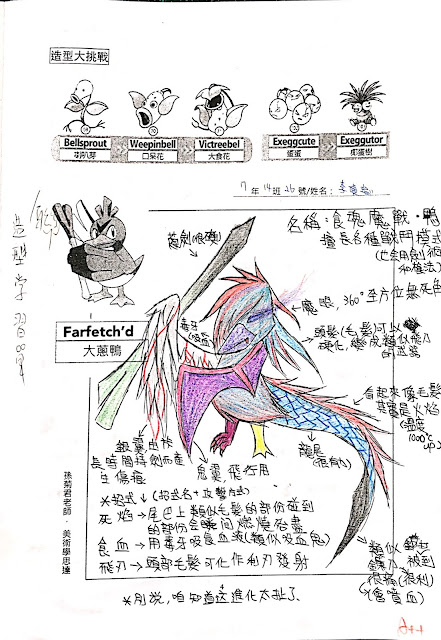 造型大挑戰
Bellsprout
喇叭芽
Weepinbell
口呆花
Victreebel
大食花
Exeggcute
蛋蛋
Exeggutor
椰蛋樹
7年14班26號/姓名:
造型學習單
Farfetch'd
大蔥鴨
名稱:食魂魔戰·鴨
擅長各種戰鬥模式
魔眼,360°全方位無死角
頭髮(毛髮)可以
硬化,變成類似飛刀
的武器
看起來像毛髮
其實是火焰
(溫度
1000°C
up)
毒牙
(吸血)
長時間持劍而產
生傷痕
鬼翼 飛行用
龍尾
*招式↓(招式名+攻擊方式)
死焰→尾巴上類似毛髮的部份碰到
的部份會瞬間燃燒殆盡
食血→用毒牙吸食血液(類似吸血鬼)
飛刃→頭部毛髮可化作利刃發射
類似
被到
很痛(很利)
(會噴血)
*別說,咱知道這進化太扯了
孫菊君老師·美術學思達
A++